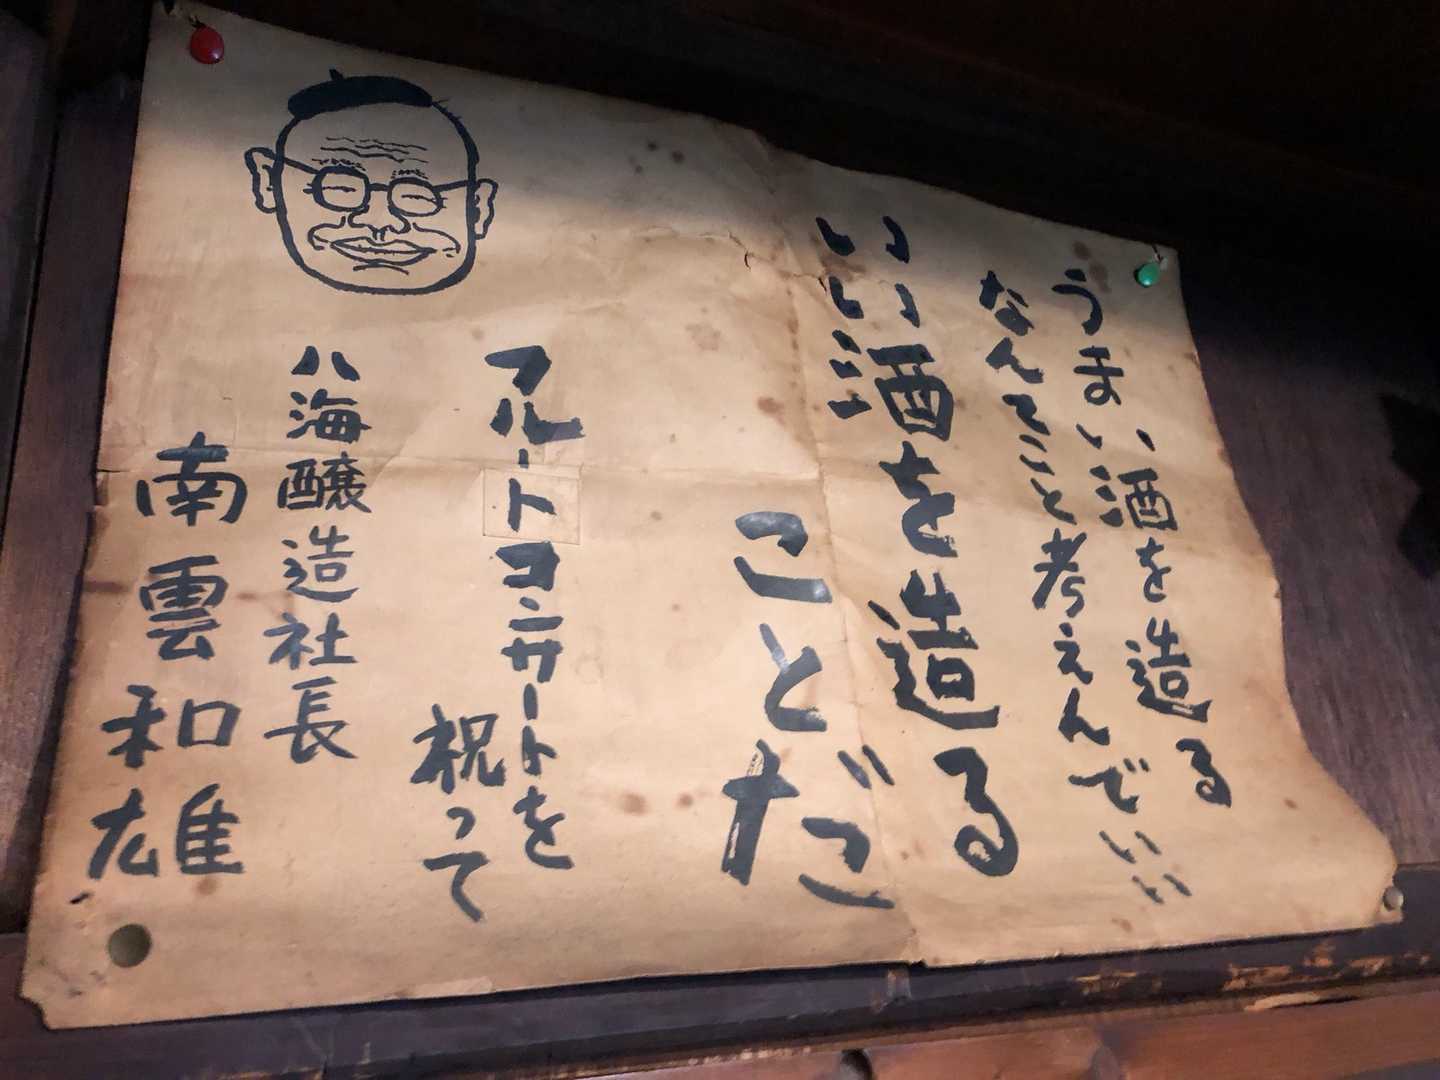 うまい酒を造る
なんてこと考えんでいい
いい酒を造る
ことだ
フルートコンサートを
祝って
八海醸造社長
南雲和雄